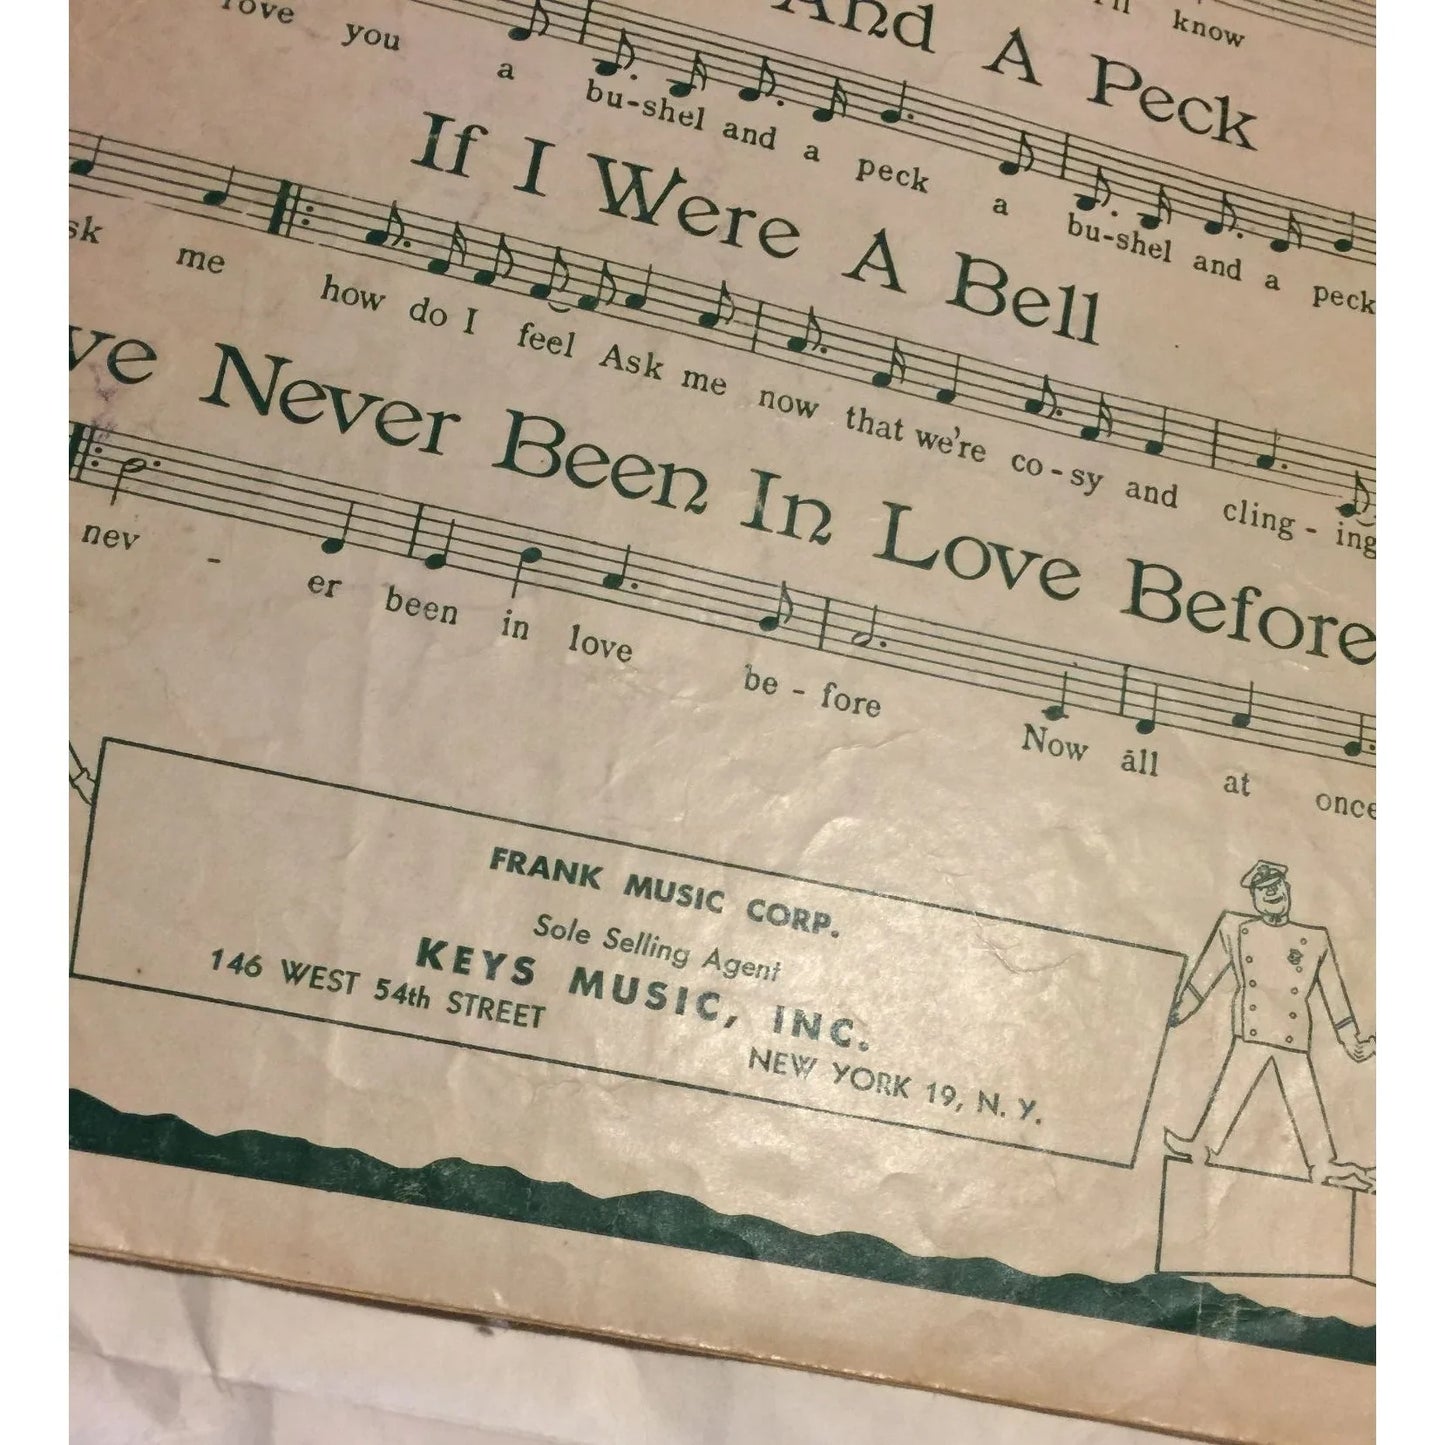 And A Peck
know
love you a bu-shel and a peck a bu-shel and a peck
If I Were A Bell
me how do I feel Ask me now that we're co-sy and cling-ing
Never Been In Love Before
nev - er been in love be-fore Now all at once
FRANK MUSIC CORP.
Sole Selling Agent
KEYS MUSIC, INC.
146 WEST 54th STREET NEW YORK 19, N. Y.